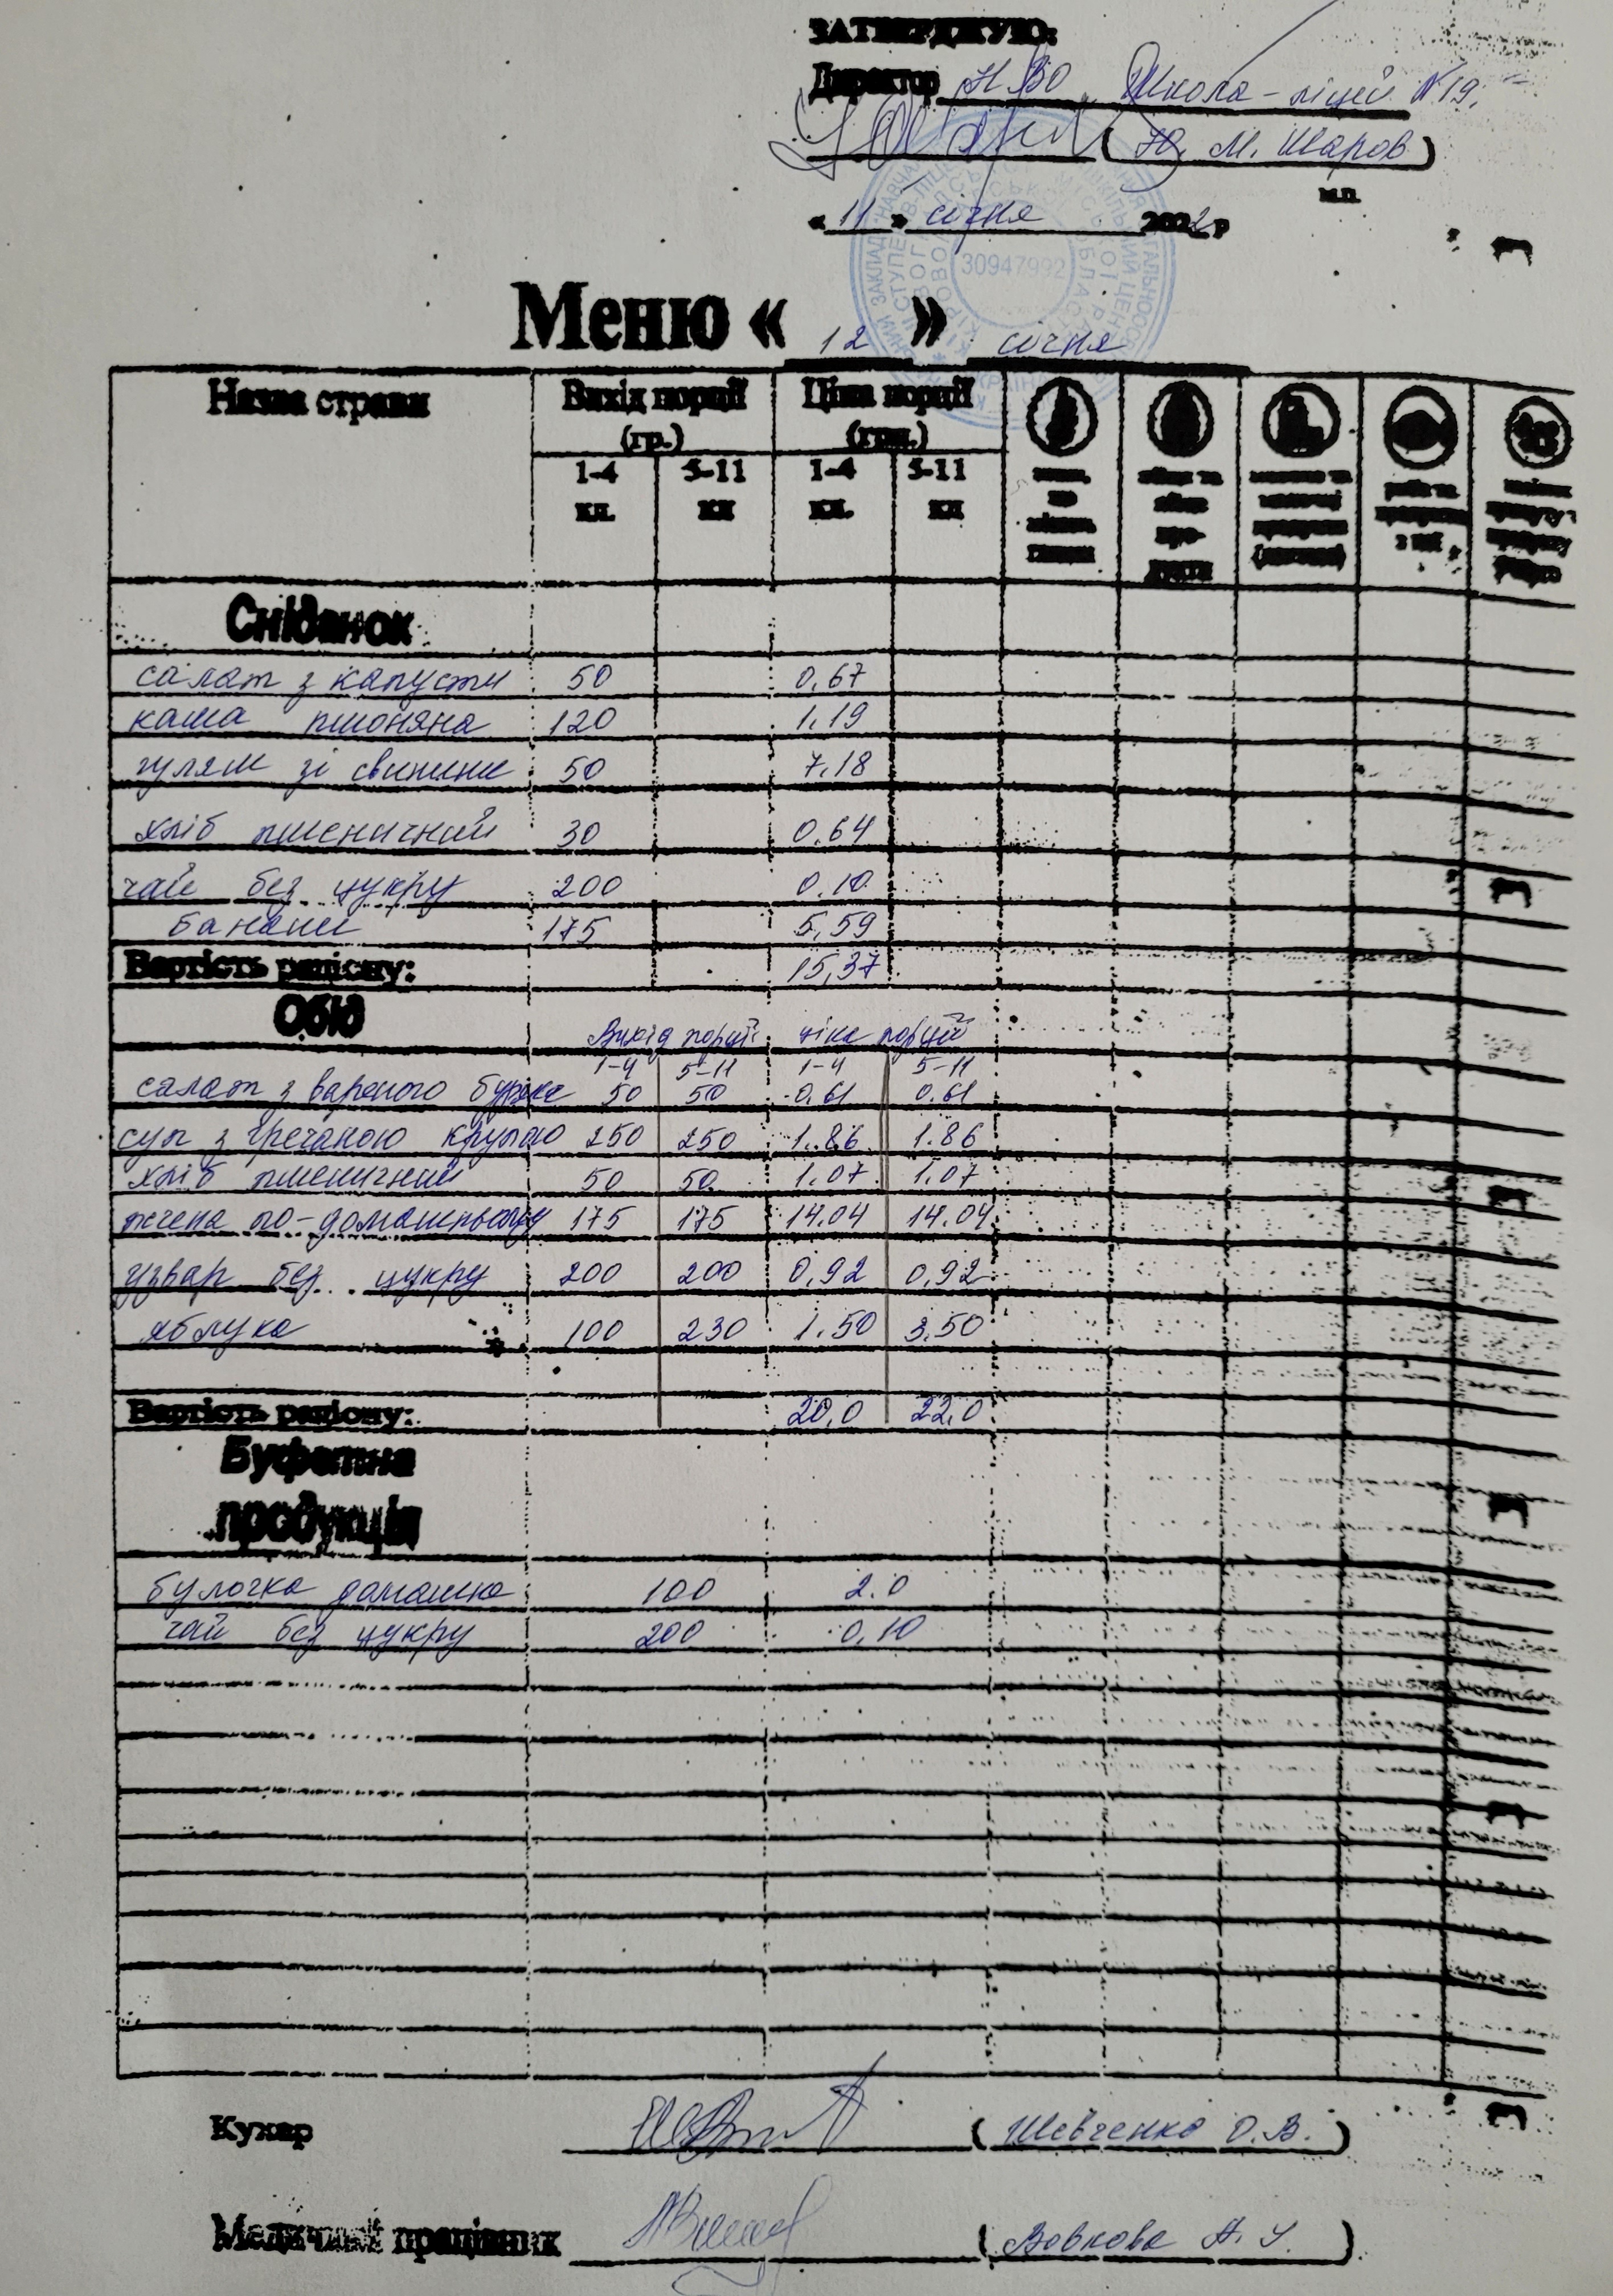 ЗАТВЕРДЖУЮ:
Директор НВО Школа-ліцей №19
(Ю. М. Шаров)
м.п.
« 11 » січня 2022 р
30947992
Меню « 12 » січня
Назва страви Вихід порції (гр.) Ціна порції (грн.)
1-4 кл. 5-11 кл 1-4 кл. 5-11 кл
яйця та
молоко та
риба та
з неї
Сніданок
салат з капусти 50 0,67
каша пшоняна 120 1.19
гуляш зі свинини 50 7,18
хліб пшеничний 30 0.64
чай без цукру 200 0.10
банани 175 5,59
Вартість раціону: 15,37
Обід
Вихід порції ціна порції
1-4 5-11 1-4 5-11
салат з вареного буряка 50 50 0,61 0.61
суп з гречаною крупою 250 250 1.86 1.86
хліб пшеничний 50 50 1.07 1.07
печеня по-домашньому 175 175 14.04 14.04
узвар без цукру 200 200 0,92 0,92
яблука 100 230 1.50 3.50
Вартість раціону: 20,0 22,0
Буфетна
продукція
булочка домашня 100 2.0
чай без цукру 200 0,10
Кухар (Шевченко О.В.)
Медичний працівник (Вовкова А. У.)